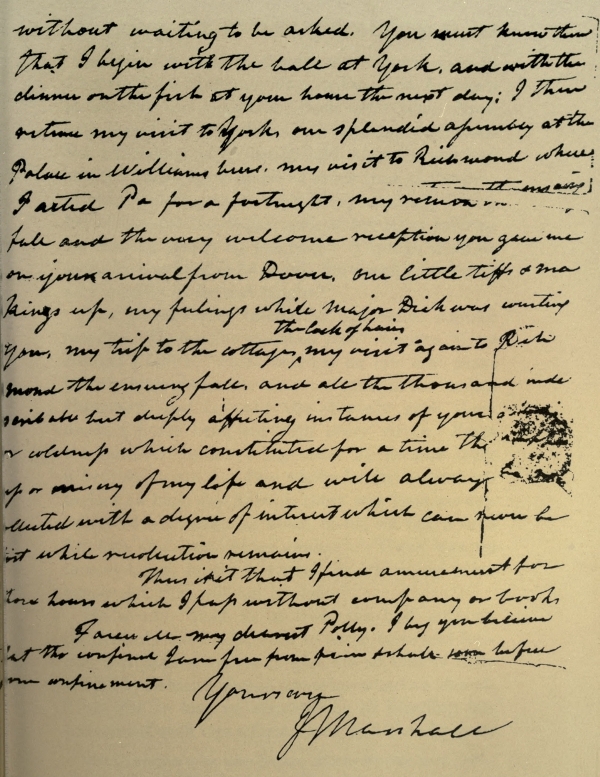 without waiting to be asked. You must know then
that I begin with the ball at York, and with the
dinner on the fish at your house the next day; I then
retrace my visit to York, our splendid assembly at the
Palace in Williamsburg, my visit to Richmond where
I acted Pa for a fortnight, my return the ensuing
fall and the very welcome reception you gave me
on your arrival from Dover, our little tiffs & ma
kings up, my feelings while Major Dick was courting
you, my trip to the cottage, the lock of hair, my visit again to Rich
mond the ensuing fall, and all the thousand inde
scribable but deeply affecting instances of your
or coldness which constituted for a time the
or misery of my life and will always
ollected with a degree of interest which can never be
ost while recollection remains.
Thus is it that I find amusement for
those hours which I pass without company or books
Farewell my dearest Polly. I beg you believe
at tho confined I am free from pain & shall soon be free
from confinement.
Yours ever
J Marshall